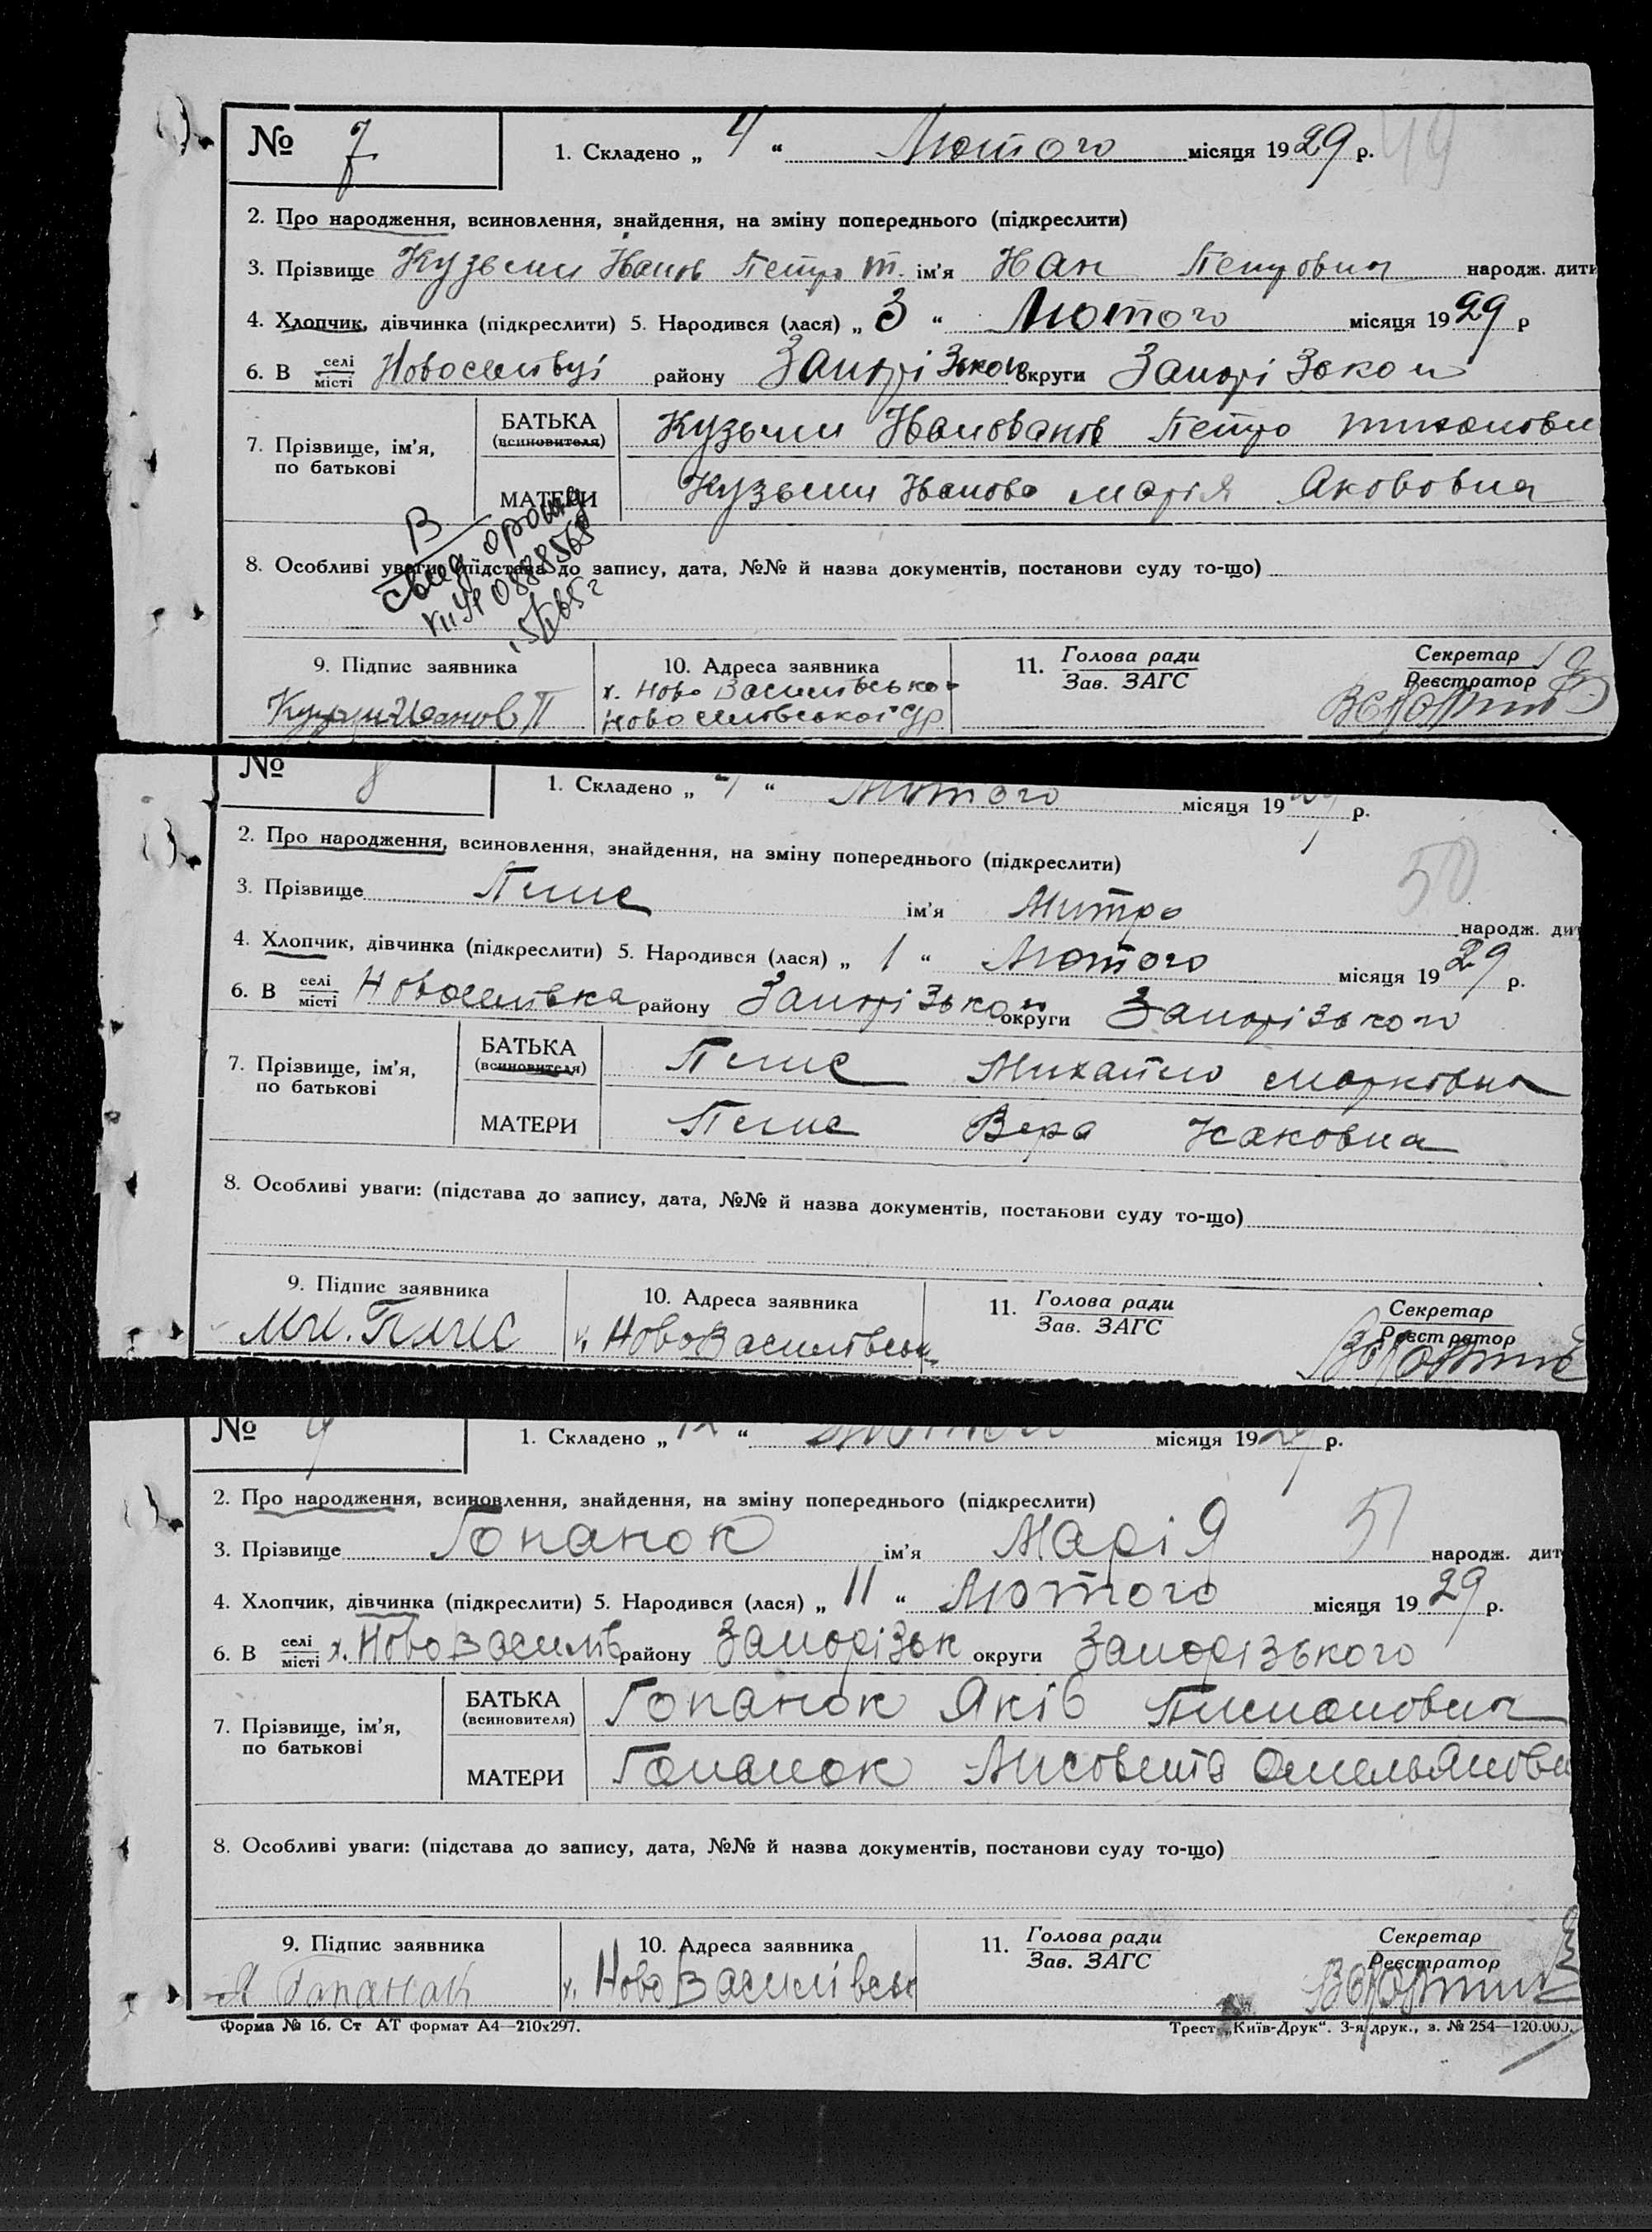 № 7
1. Складено „ 4 “ Лютого місяця 1929 р. 49
2. Про народження, всиновлення, знайдення, на зміну попереднього (підкреслити)
3. Прізвище Кузьмин Иванов Петро Т. ім'я Иван Петрович народж. дити
4. Хлопчик, дівчинка (підкреслити) 5. Народився (лася) „ 3 “ Лютого місяця 1929 р
6. В селі місті Новоселівці району Запорізькои округи Запорізькои
7. Прізвище, ім'я, по батькові
БАТЬКА (всиновителя) Кузьмин Петро Тихонови
МАТЕРИ Кузьмин Иванова Марія Акововна
В
свид о рожд
0888565
8. Особливі уваги: (підстава до запису, дата, №№ й назва документів, постанови суду то-що)
9. Підпис заявника
10. Адреса заявника
11. Голова ради Зав. ЗАГС
Секретар Реєстратор
х. Ново Василівсько
Новоселівської с/р
№ 8
1. Складено „ 4 “ Лютого місяця 1929 р.
2. Про народження, всиновлення, знайдення, на зміну попереднього (підкреслити)
50
3. Прізвище Плис ім'я Митро народж. дит
4. Хлопчик, дівчинка (підкреслити) 5. Народився (лася) „ 1 “ Лютого місяця 1929 р.
6. В селі місті Новоселівка району Запорізькои округи Запорізькои
7. Прізвище, ім'я, по батькові
БАТЬКА (всиновителя) Плис Михайло Маркович
МАТЕРИ Плис Вера Исаковна
8. Особливі уваги: (підстава до запису, дата, №№ й назва документів, постанови суду то-що)
9. Підпис заявника
10. Адреса заявника
11. Голова ради Зав. ЗАГС
Секретар Реєстратор
Ми. Плис
х. НовоВасилівськ
№ 9
1. Складено „ 12 “ Лютого місяця 1929 р.
2. Про народження, всиновлення, знайдення, на зміну попереднього (підкреслити)
3. Прізвище Гопанок ім'я Марія 51 народж. дит
4. Хлопчик, дівчинка (підкреслити) 5. Народився (лася) „ 11 “ Лютого місяця 1929 р.
6. В селі місті х. НовоВасилів району Запорізьк округи Запорізького
7. Прізвище, ім'я, по батькові
БАТЬКА (всиновителя) Гопанок Яків Пилипович
МАТЕРИ Гопанок Лисовета Омельяновн
8. Особливі уваги: (підстава до запису, дата, №№ й назва документів, постанови суду то-що)
9. Підпис заявника
10. Адреса заявника
11. Голова ради Зав. ЗАГС
Секретар Реєстратор
Я Гапанак
х. Ново Василівськ
Форма № 16. Ст АТ формат А4—210х297.
Трест „Київ-Друк“. 3-я друк., з. № 254—120.000.